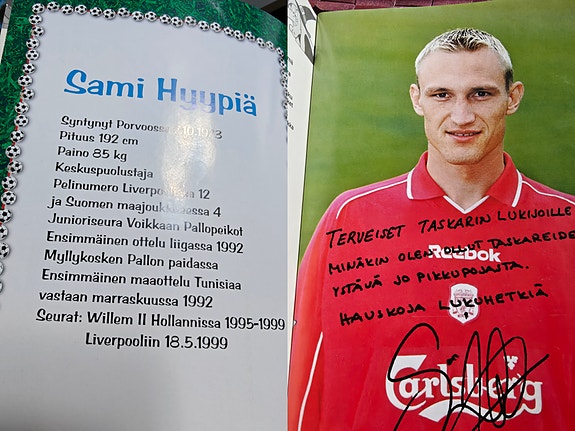 Sami Hyypiä
Syntynyt Porvoossa
Pituus 192 cm
Paino 85 kg
Keskuspuolustaja
Pelinumero Liverpoolissa 12
ja Suomen maajoukkueessa 4
Junioriseura Voikkaan Pallopeikot
Ensimmäinen ottelu liigassa 1992
Myllykosken Pallon paidassa
Ensimmäinen maaottelu Tunisiaa
vastaan marraskuussa 1992
Seurat: Willem II Hollannissa 1995-1999
Liverpooliin 18.5.1999
TERVEISET TASKARIN LUKIJOILLE
Reebok
MINÄKIN OLEN OLLUT TASKAREIDEN
YSTÄVÄ JO PIKKUPOJASTA.
HAUSKOJA LUKUHETKIÄ
Carlsberg